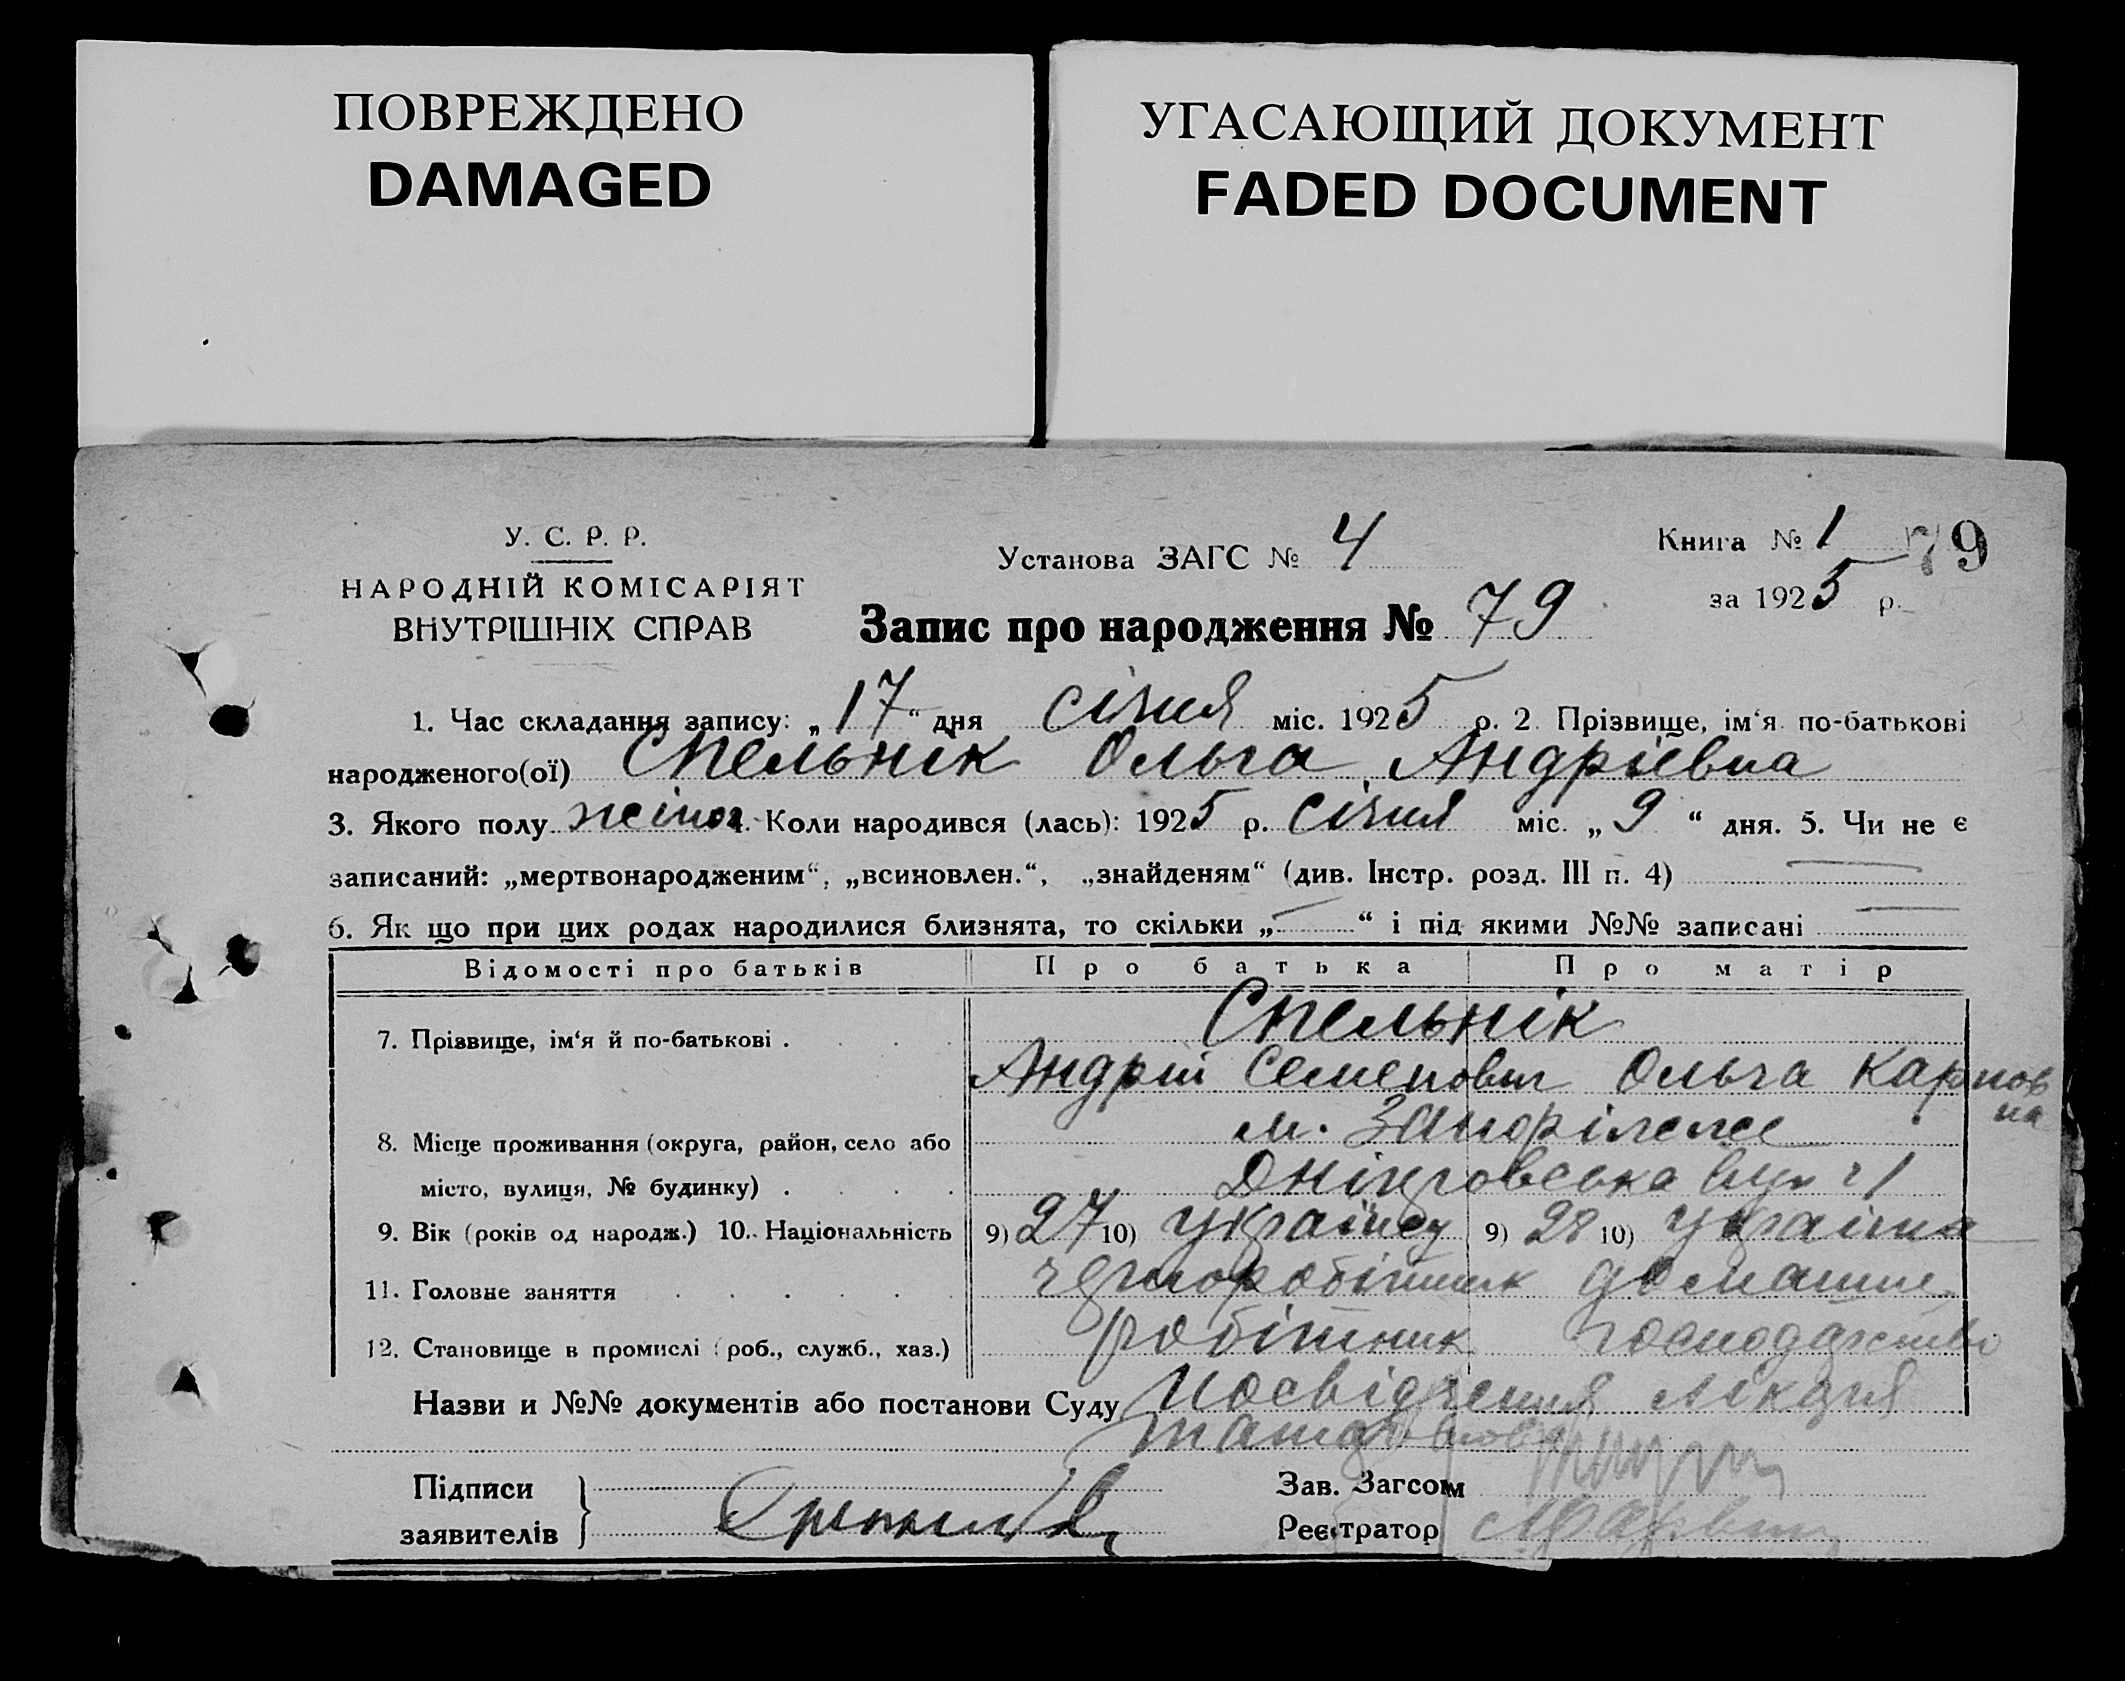 ПОВРЕЖДЕНО
DAMAGED
УГАСАЮЩИЙ ДОКУМЕНТ
FADED DOCUMENT
У. С. Р. Р.
НАРОДНІЙ КОМІСАРІЯТ
ВНУТРІШНІХ СПРАВ
Установа ЗАГС № 4
Книга № 1 79
за 1925 р.
Запис про народження № 79
1. Час складання запису: „17“ дня січня міс. 1925 р. 2. Прізвище, ім‘я по-батькові
народженого(ої) Спельнік Ольга Андріівна
3. Якого полу жіноч. 4. Коли народився (лась): 1925 р. січня міс. „9“ дня. 5. Чи не є
записаний: „мертвонародженим“, „всиновлен.“, „знайденям“ (див. Інстр. розд. III п. 4) —
6. Як що при цих родах народилися близнята, то скільки „—“ і під якими №№ записані —
Відомості про батьків Про батька Про матір
7. Прізвище, ім‘я й по-батькові . . . . Спельнік
Андрій Семенович Ольга Карповна
8. Місце проживання (округа, район, село або м. Запоріжже
місто, вулиця, № будинку) . . . . Дніпровська вул
9. Вік (років од народж.) 10. Національність 9) 27 10) українец 9) 28 10) українка
11. Головне заняття . . . . . чорноробітник домашнє
12. Становище в промислі (роб., служб., хаз.) робітник господарство
Назви и №№ документів або постанови Суду Посвідчення лікаря
Підписи
заявителів
Зав. Загсом
Реєстратор